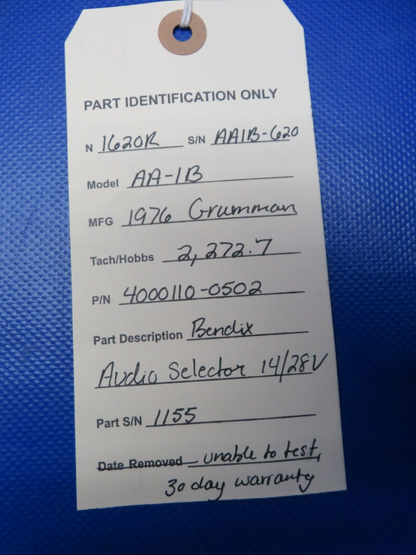 PART IDENTIFICATION ONLY
N 1620R S/N AA1B-620
Model AA-1B
MFG 1976 Grumman
Tach/Hobbs 2,272.7
P/N 4000110-0502
Part Description Bendix
Audio Selector 14/28V
Part S/N 1155
Date Removed unable to test,
30 day warranty